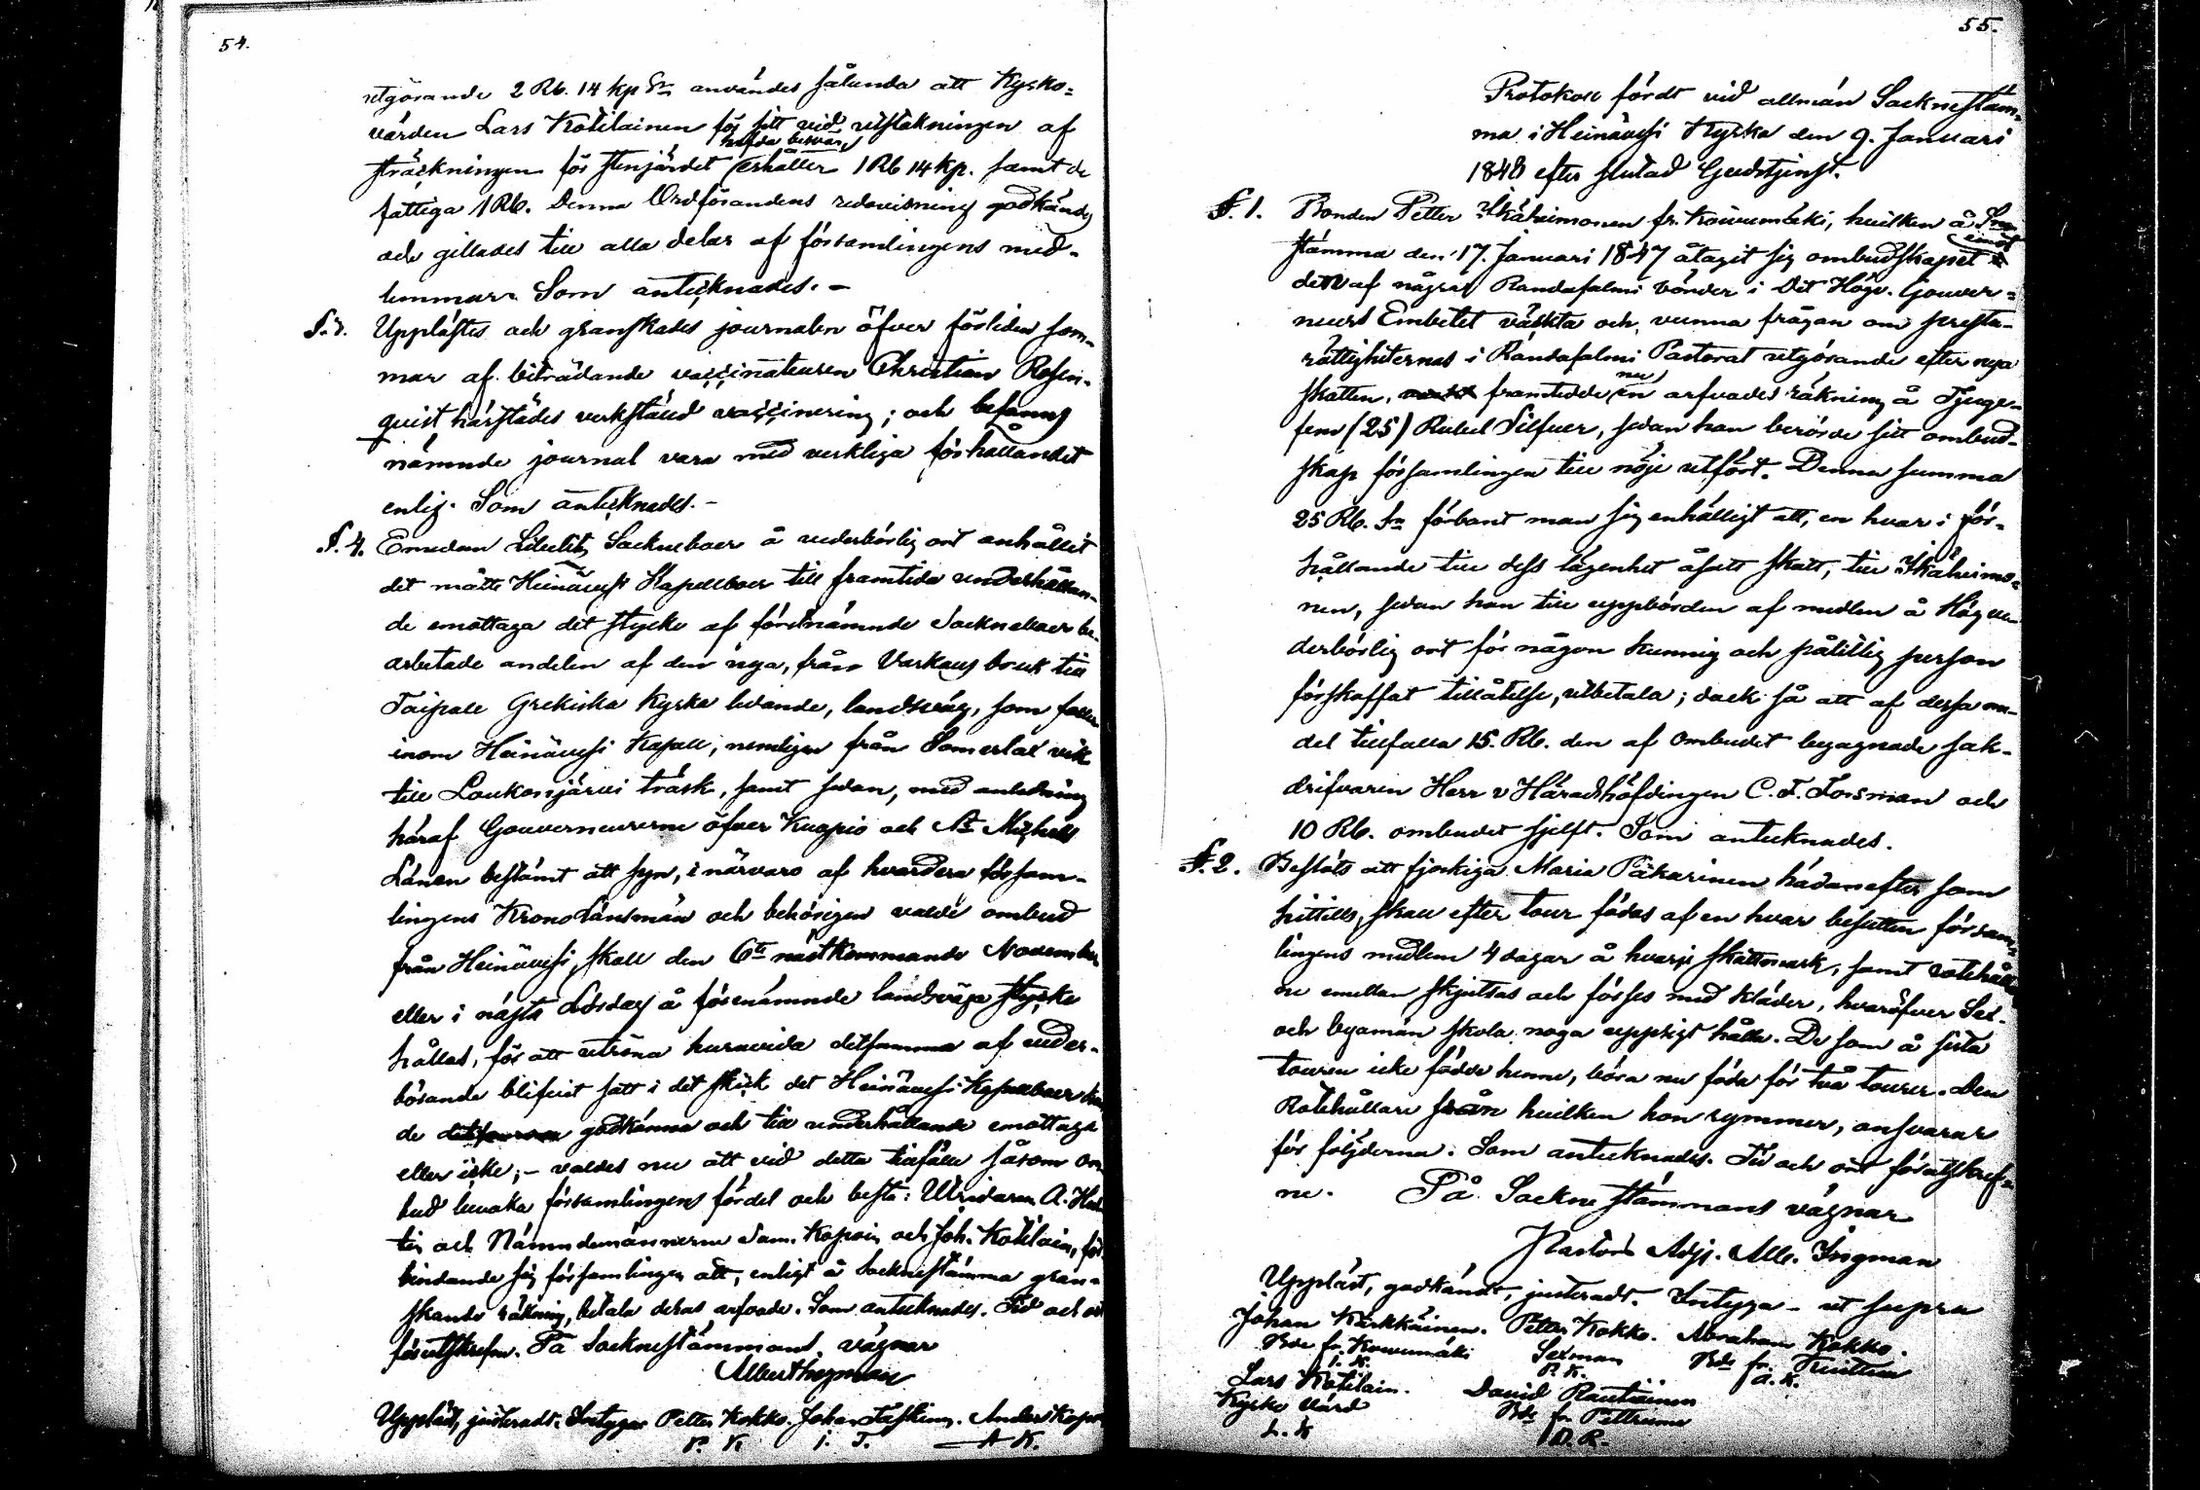 54.
utgörande 2 Rb. 14 kp Sr användes sålunda att Kyrko-
värden Lars Kotilainen för sitt vid utstakningen af
hafda besvär
sträckningen för stenjärdet erhåller 1 Rb 14 kp. samt de
fattiga 1 Rb. Denna Ordförandens redovisning godkändes
och gillades till alla delar af församlingens med-
lemmar. Som antecknades. -
§. 3. Upplästes och granskades journalen öfver förliden som-
mar af biträdande vaccinateuren Christian Rosen-
quist härstädes verkstäld vaccinering; och befanns
nämnde journal vara med verkliga förhållandet
enlig. Som antecknades. -
§. 4. Emedan Libelits Sockneboer å vederbörlig ort anhållit
det måtte Heinävesi Kapellboer till framtida underhållan-
de emottaga det stycke af förstnämnde Sockneboer be-
arbetade andelen af den nya, från Varkaus bruk till
Taipale Grekiska kyrka ledande, landsväg, som faller
inom Heinävesi Kapell, nemligen från Somerlax vik
till Loukonjärvi träsk, samt sedan, med anledning
häraf Gouverneurerne öfver Kuopio och St Michels
Länen bestämt att syn, i närvaro af hvardera försam-
lingens Kronolänsmän och behörigen valde ombud
från Heinävesi, skall den 6te nästkommande November
eller i nästa Lördag å förenämnde landsvägs stycke
hållas, för att utröna huruvida detsamma af veder-
börande blifvit satt i det skick det Heinävesi Kapellboer kun
de godkänna och till underhållande emottaga
eller icke; - valdes nu att vid detta tillfälle såsom om
bud bevaka församlingens fördel och bästa: Uhridaren A. Hu
tin och Nämndemännerne Sam. Kopoin och Joh. Kotilain, för
bindande sig församlingen att, enligt å Sockenstämma gran-
skande räkning, betala deras arfvode. Som antecknades. Tid och ort
förutskrefne. På Socknestämmans vägnar
Albert Ingman
Uppläst, justeradt. Intyga Petter Kokko. Johan Taskinen. Anders Kopo
P. K. J. T. A K.
55.
Protokoll fördt vid allmän Socknestäm-
ma i Heinävesi Kyrka den 9. Januari
1848 efter slutad Gudstjenst.
§. 1. Bonden Petter Ikäheimonen fr. Kouvumäki, hvilken å Sne
stämma den 17. Januari 1847 åtagit sig ombudskapet emot
det af några Randasalmi bönder i Det Höge. Gouver-
neurs Embetet väckta och vunna frågan om presta-
rättigheternas i Randasalmi Pastorat utgörande efter nya
skatten, framtedde nu en arfvodes räkning å Tjuge-
fem (25) Rubel Silfver, sedan han berörde sitt ombud-
skap församlingen till nöje utfört. Denna summa
25 Rb. Sr förbant man sig enhälligt att, en hvar i för-
hållande till dess lägenhet åsatt skatt, till Ikäheimo-
nen, sedan han till uppbörden af medlen å Hög ve-
derbörlig ort för någon kunnig och pålitlig person
förskaffat tillåtelse, utbetala; dock så att af dessa me-
del tillfalla 15. Rb. den af ombudet begagnade sak-
drifvaren Herr v Häradshöfdingen C. F. Forsman och
10 Rb. ombudet sjelft. Som antecknades.
§. 2. Beslöts att sjukliga Maria Päkarinen hädanefter som
hittills, skall efter tour födas af en hvar besutten försam-
lingens medlem 4 dagar å hvarje skattmark, samt rotehålla
ne emellan skjutsas och förses med kläder, hvaröfver Sex-
och byamän skola noga uppsigt hålla. De som å sista
touren icke födde henne, böra nu föda för två tourer. Den
Rotehållare från hvilken hon rymmer, ansvarar
för följderna. Som antecknades. Tid och ort förutskref-
ne. På Sockne stämmans vägnar
Pastors Adj. Alb. Ingman
Uppläst, godkändt, justeradt. Intyga - ut supra
Johan Kärkkäinen. Petter Kokko. Abraham Kokko.
Bde fr. Kouvumäki Sexman Bde fr.
J. K. P. K. A. K.
Lars Kotilain. David Rautiainen
Kyrko värd Bde fr Petruma
L. K D. R.